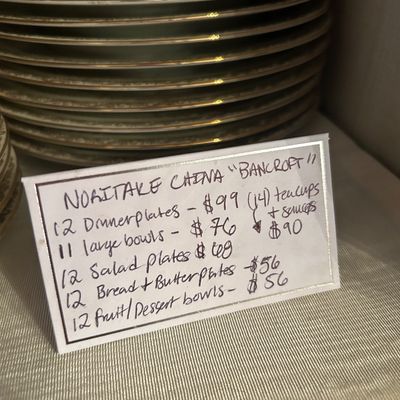 NORITAKE CHINA "BANCROFT"
12 Dinnerplates - $99 (14) teacups
+ saucers
11 large bowls - $76 $90
12 Salad plates $68
12 Bread + Butter plates $56
12 Fruit/Dessert bowls - $56